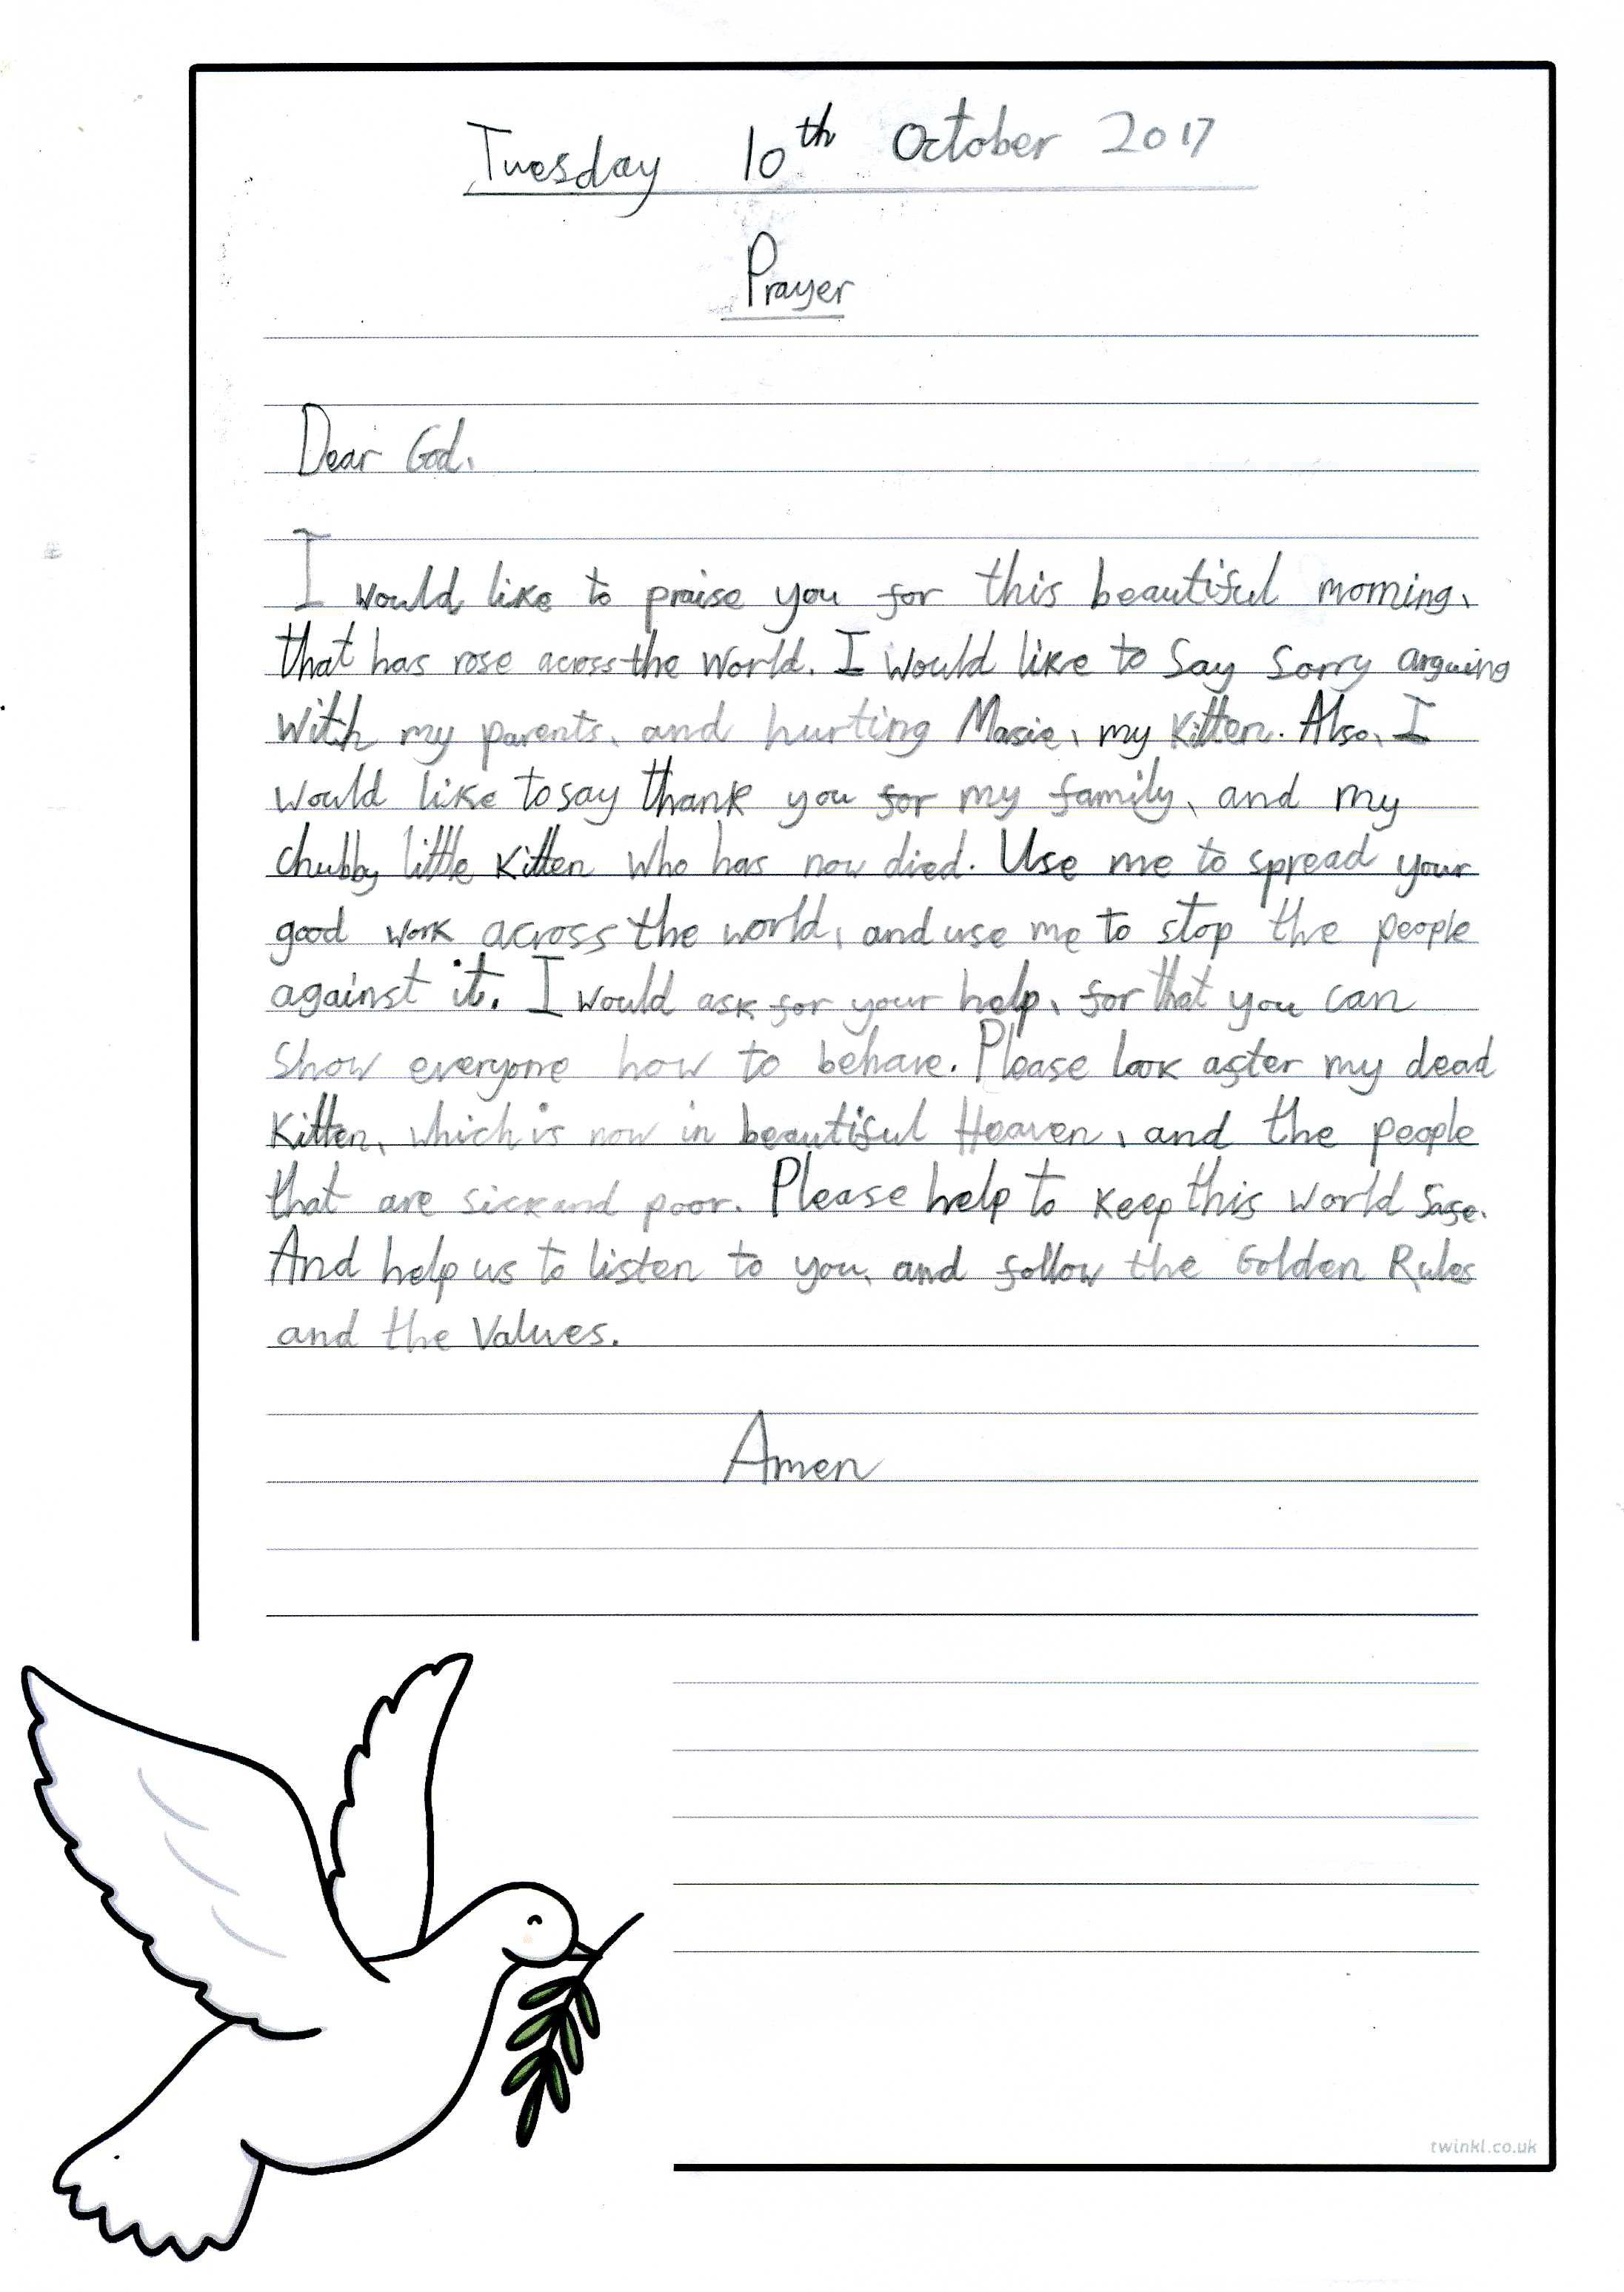 Tuesday 10th October 2017
Prayer
Dear God,
I would like to praise you for this beautiful morning,
that has rose across the world. I would like to say sorry arguing
with my parents, and hurting Masie, my kitten. Also, I
would like to say thank you for my family, and my
chubby little kitten who has now died. Use me to spread your
good work across the world, and use me to stop the people
against it. I would ask for your help, for that you can
show everyone how to behave. Please look after my dead
kitten, which is now in beautiful Heaven, and the people
that are sick and poor. Please help to keep this world safe.
And help us to listen to you, and follow the Golden Rules
and the Values.
Amen
twinkl.co.uk